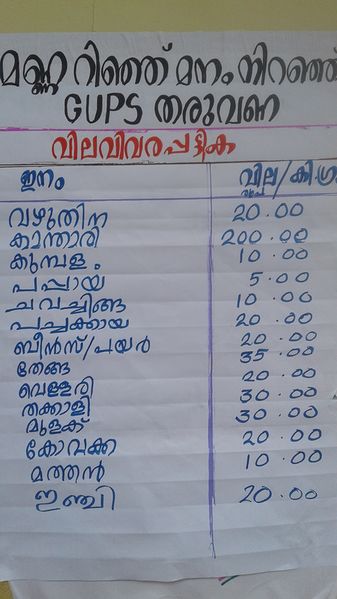 മണ്ണറിഞ്ഞ് മനം നിറഞ്ഞ്
GUPS തരുവണ
വിലവിവരപ്പട്ടിക
ഇനം വില/കി.ഗ്ര
രൂപ
വഴുതിന 20.00
കാന്താരി 200.00
കുമ്പളം 10.00
പപ്പായ 5.00
ചവച്ചിങ്ങ 10.00
പച്ചക്കായ 20.00
ബീൻസ്/പയർ 20.00
തേങ്ങ 35.00
വെള്ളരി 20.00
തക്കാളി 30.00
മുളക് 30.00
കോവക്ക 20.00
മത്തൻ 10.00
ഇഞ്ചി 20.00